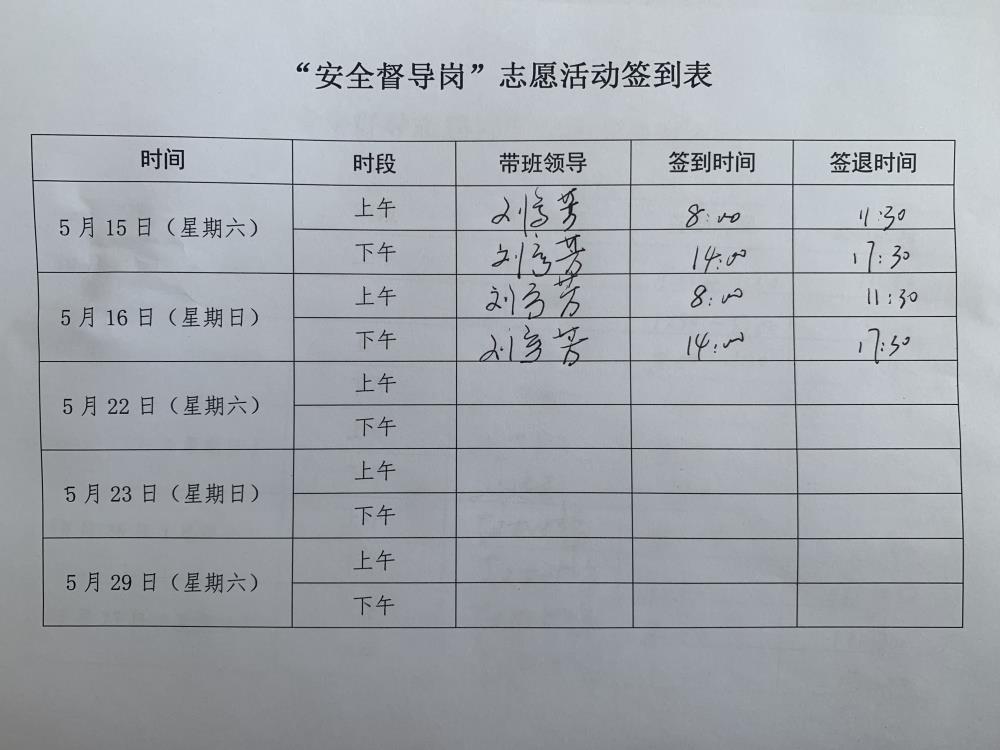 “安全督导岗”志愿活动签到表
时间 时段 带班领导 签到时间 签退时间
5月15日（星期六） 上午 刘 芳 8:00 11:30
下午 刘 芳 14:00 17:30
5月16日（星期日） 上午 刘 芳 8:00 11:30
下午 刘 芳 14:00 17:30
5月22日（星期六） 上午
下午
5月23日（星期日） 上午
下午
5月29日（星期六） 上午
下午